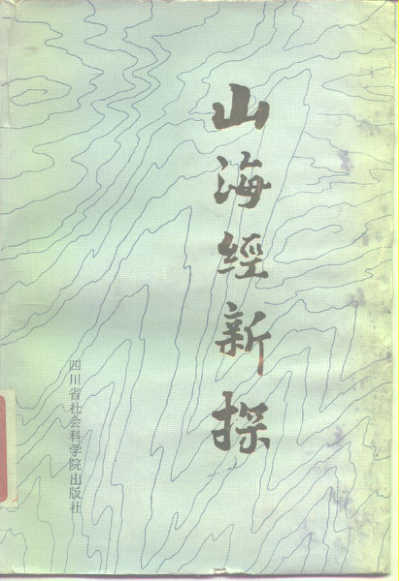 山海經新探
四川省社会科学院出版社